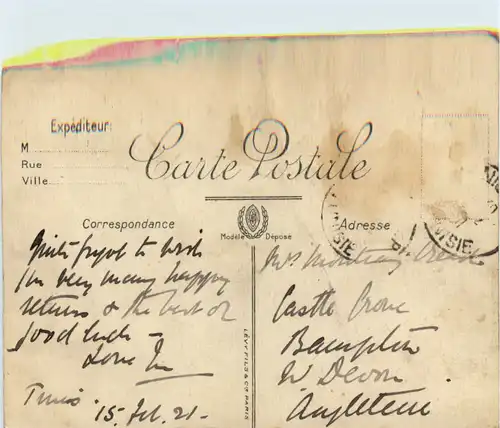 Expéditeur:
M
Rue
Ville
Carte Postale
Correspondance
Modèle Déposé
Adresse
Quite forgot to wish
you very many happy
returns & the best of
good luck -
Love
Tunis
15. Feb. 21.
LÉVY FILS & Cie PARIS
Mrs
Castle Grove
Bampton
N. Devon
Angleterre
SIE
ISIE